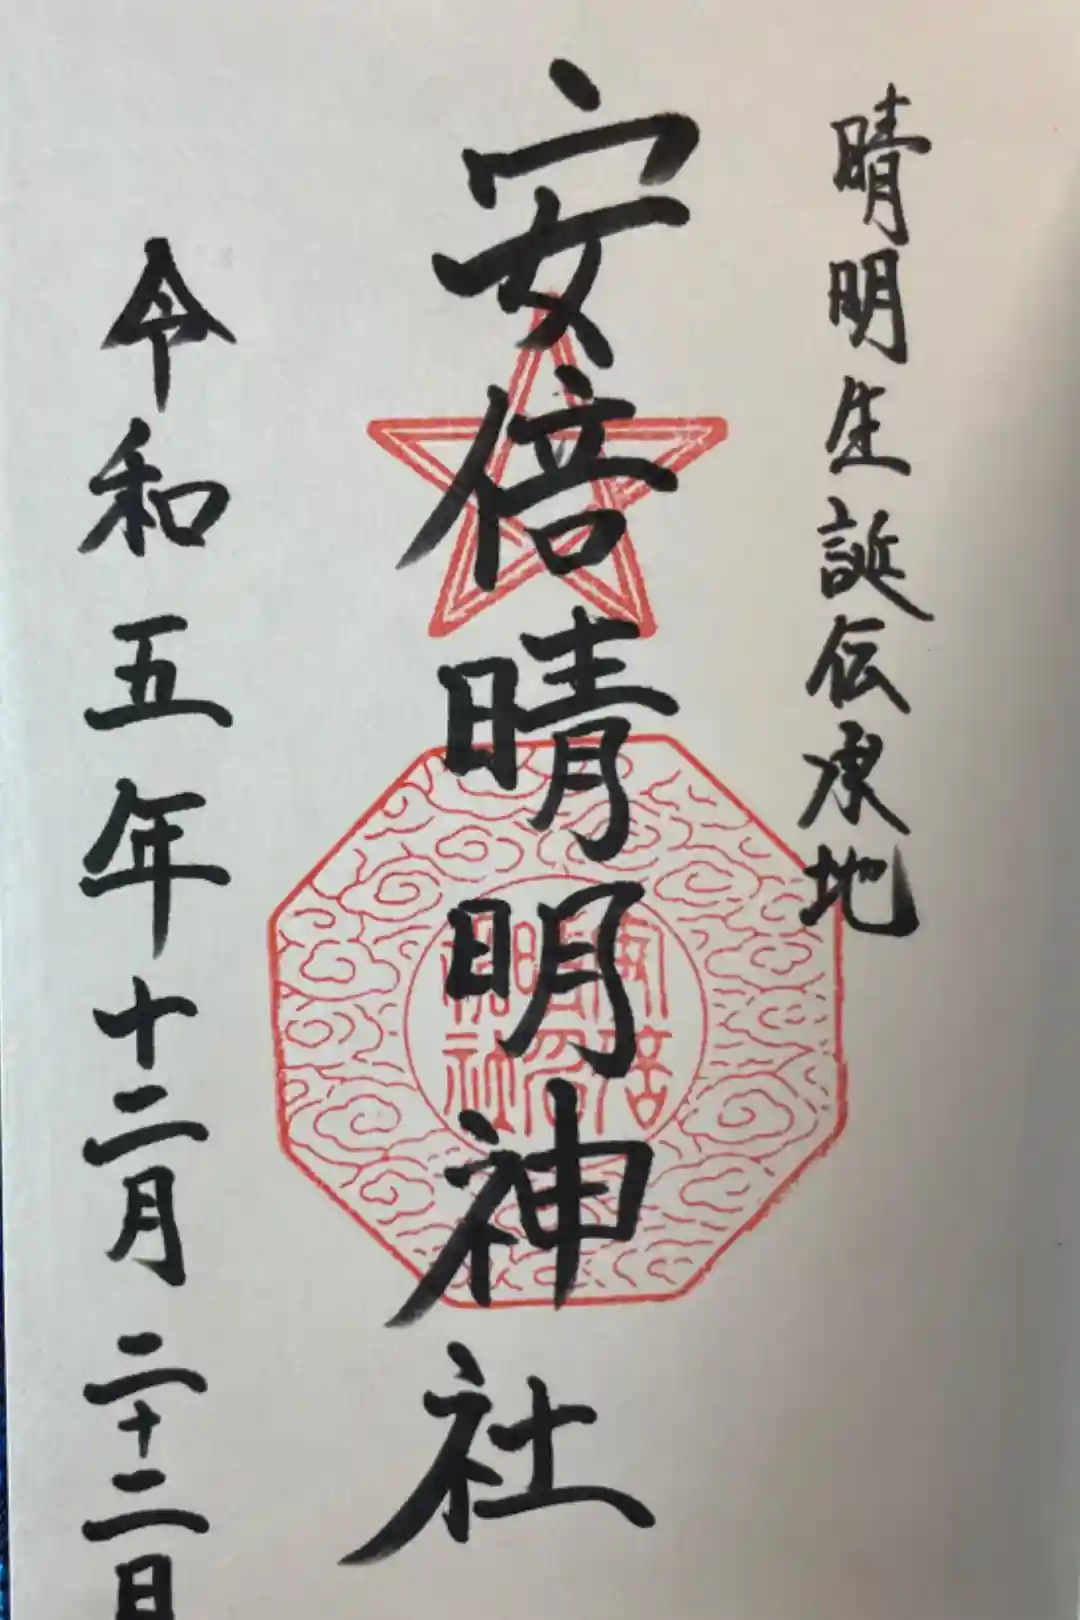 晴明生誕伝承地
安倍晴明神社
令和五年十二月二十二日